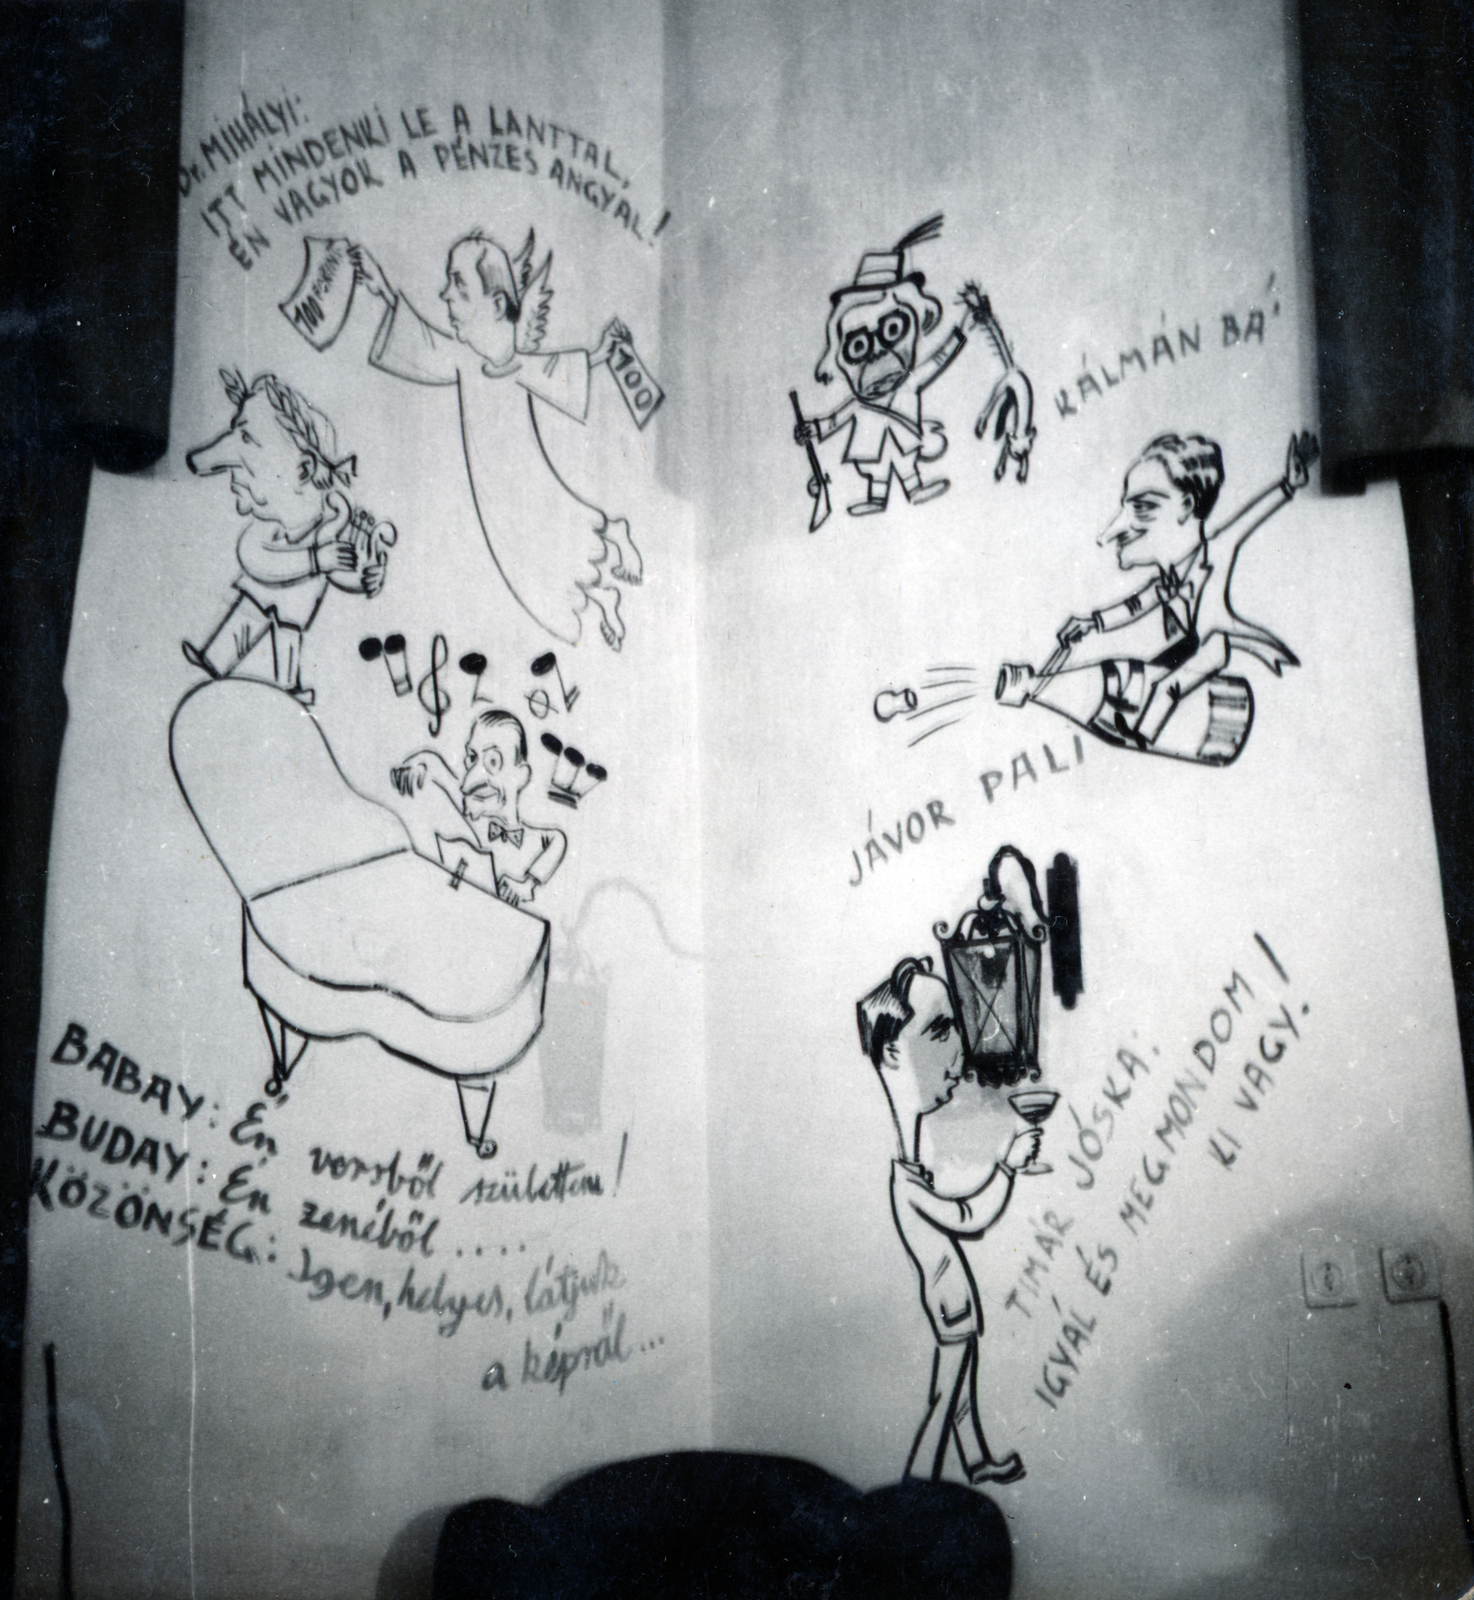 Dr. MIHÁLYI:
ITT MINDENKI LE A LANTTAL,
ÉN VAGYOK A PÉNZES ANGYAL!
100 FORINT
100
KÁLMÁN BÁ'
JÁVOR PALI
BABAY: Én versből születtem!
BUDAY: Én zenéből ....
KÖZÖNSÉG: Igen, helyes, látjuk
a képről...
TIMÁR JÓSKA:
IGYÁL ÉS MEGMONDOM
KI VAGY!